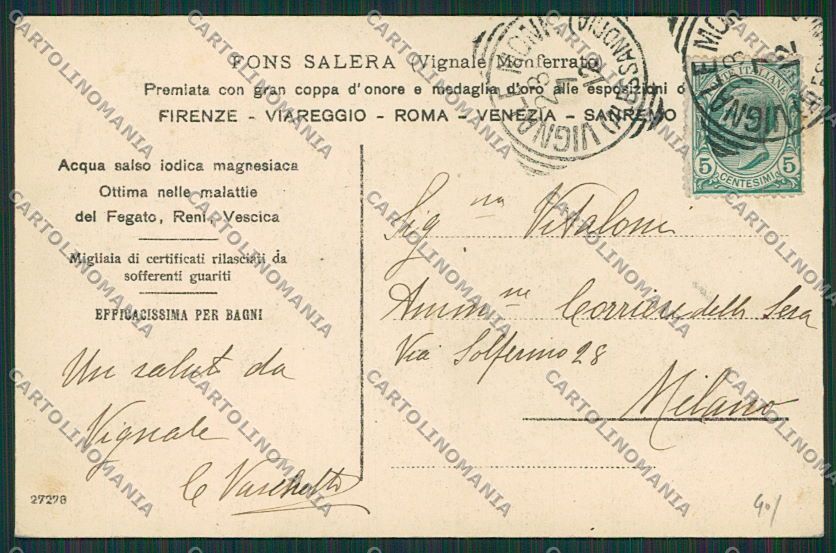 FONS SALERA (Vignale Monferrato)
Premiata con gran coppa d'onore e medaglia d'oro alle esposizioni d
FIRENZE - VIAREGGIO - ROMA - VENEZIA - SANREMO
POSTE ITALIANE
5 CENTESIMI 5
Acqua salso iodica magnesiaca
Ottima nelle malattie
del Fegato, Reni, Vescica
Migliaia di certificati rilasciati da
sofferenti guariti
EFFICACISSIMA PER BAGNI
Un salut da
Vignale
27278
Sig na Vitaloni
Amm ne Corriere della Sera
Via Solferino 28
Milano
CARTOLINOMANIA